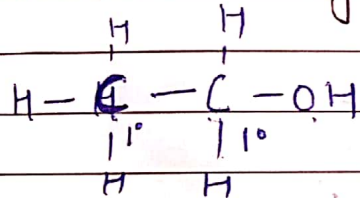 H H
H – C – C – OH
1° 1°
H H